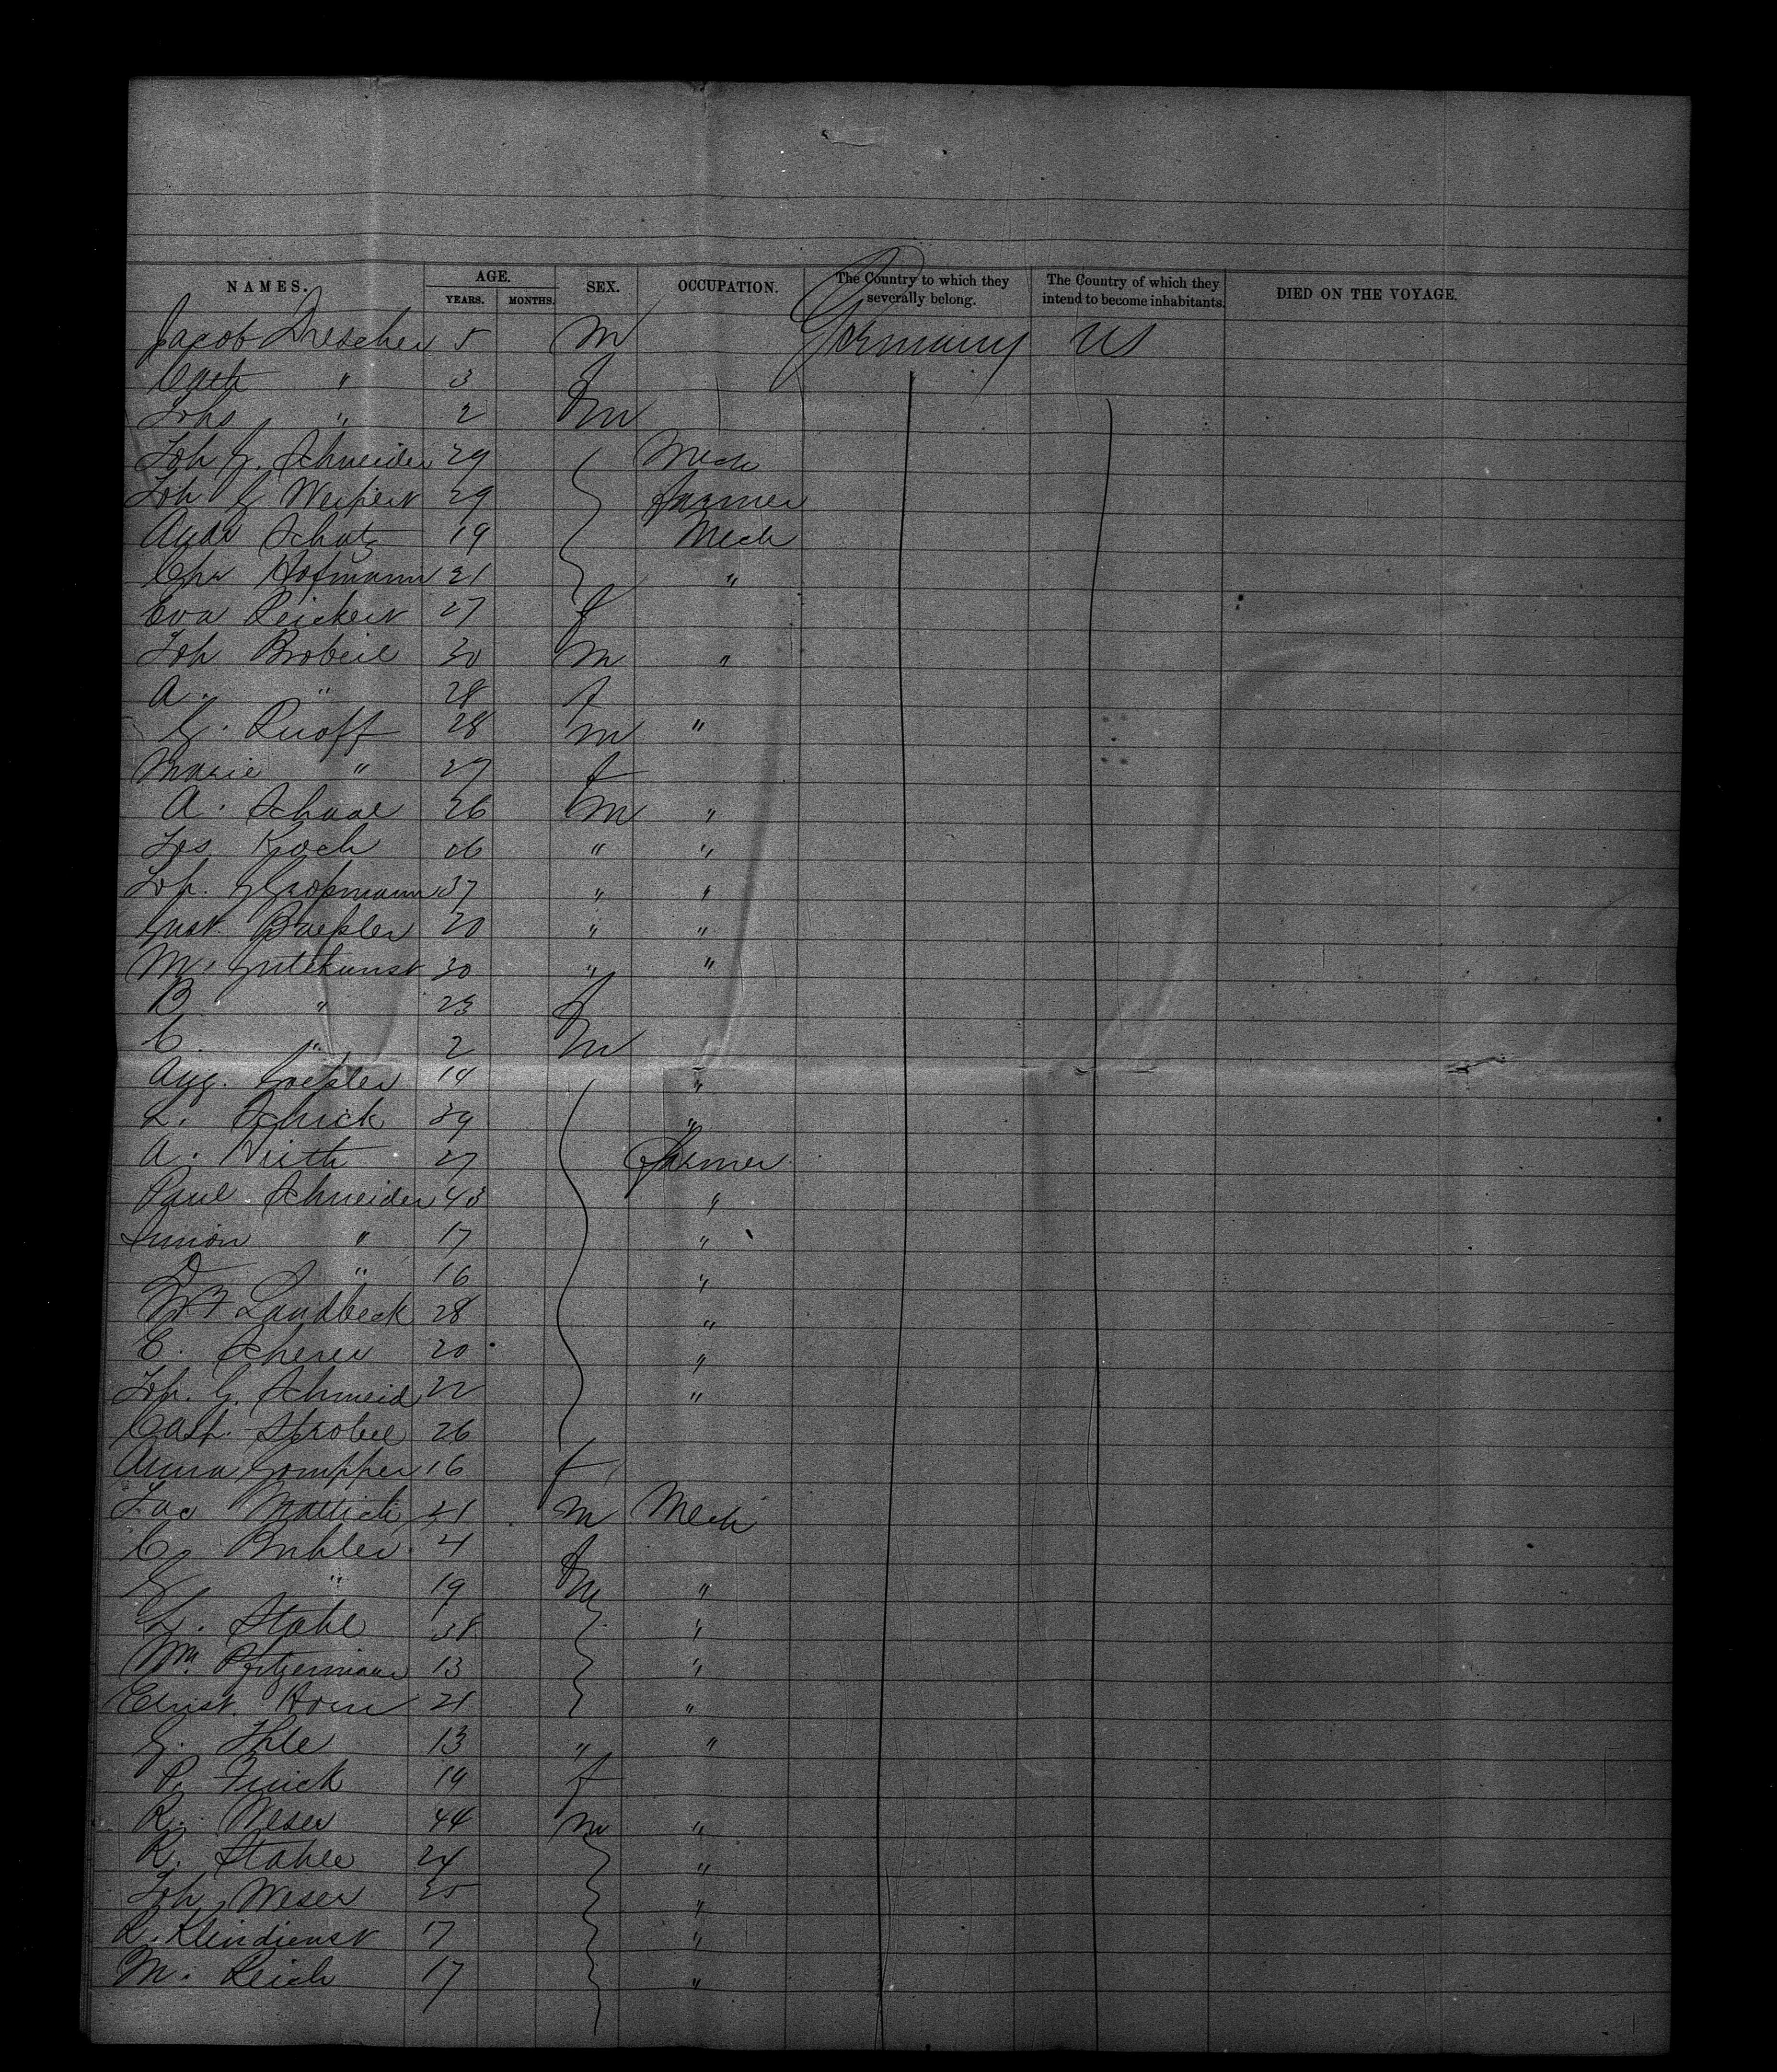 NAMES. AGE. YEARS. MONTHS. SEX. OCCUPATION. The Country to which they severally belong. The Country of which they intend to become inhabitants. DIED ON THE VOYAGE.
Jacob Drescher 5 M Germany US
Cath " 3 f
Johs " 2 M
Joh G. Schneider 29 Mech
Joh G Weipert 29 farmer
Andr Schatz 19 Mech
Chr Hofmann 21 "
Eva Reichert 27 f
Joh Brobeil 30 M "
A. " 28 f
G. Ruoff 28 M "
Marie " 27 f
A. Schaal 26 M "
Jos Koch 26 " "
Joh. G Grossmann 37 " "
Gust. 20 " "
M. Gutekunst 30 " "
B. " 23 f
C. " 2 M
Aug. 14 "
L. Schick 39 "
A. Hirth 27 Farmer
Paul Schneider 43 "
Simon " 17 "
" 16 "
Landbeck 28 "
C. Scherer 20 "
Joh. G. Schmeid 22 "
Casp. Strobel 26
Anna Gompper 16 f
Jac Mattich 21 M Mech
C. Buhler 4 f
G " 19 M "
L. Stahl 38 "
Wm. 13 "
Ernst. Horn 21 "
G. Ihle 13 " "
P. Frick 19 f
R. Weser 44 M "
R. Stahle 24 "
Joh Weser 25 "
L. Kleindienst 17 "
M. Reich 17 "